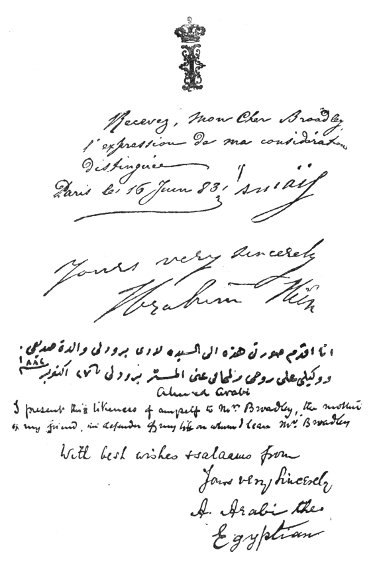 Recevez, Mon Cher Broadley
l'expression de ma considération
distinguée
Paris le 16 Juin 83
Yours very sincerely
Ibrahim
انا اقدم صورتى هذه الى السيده لادى برودلى والدة صديقى
ووكيلى على روحى المستر برودلى اكتوبر
Ahmed Arabi
I present this likeness of myself to Mrs. Broadley, the mother
of my friend, defender of my life on whom I lean Mr. Broadley
With best wishes & salaams from
Yours very Sincerely
A. Arabi the
Egyptian